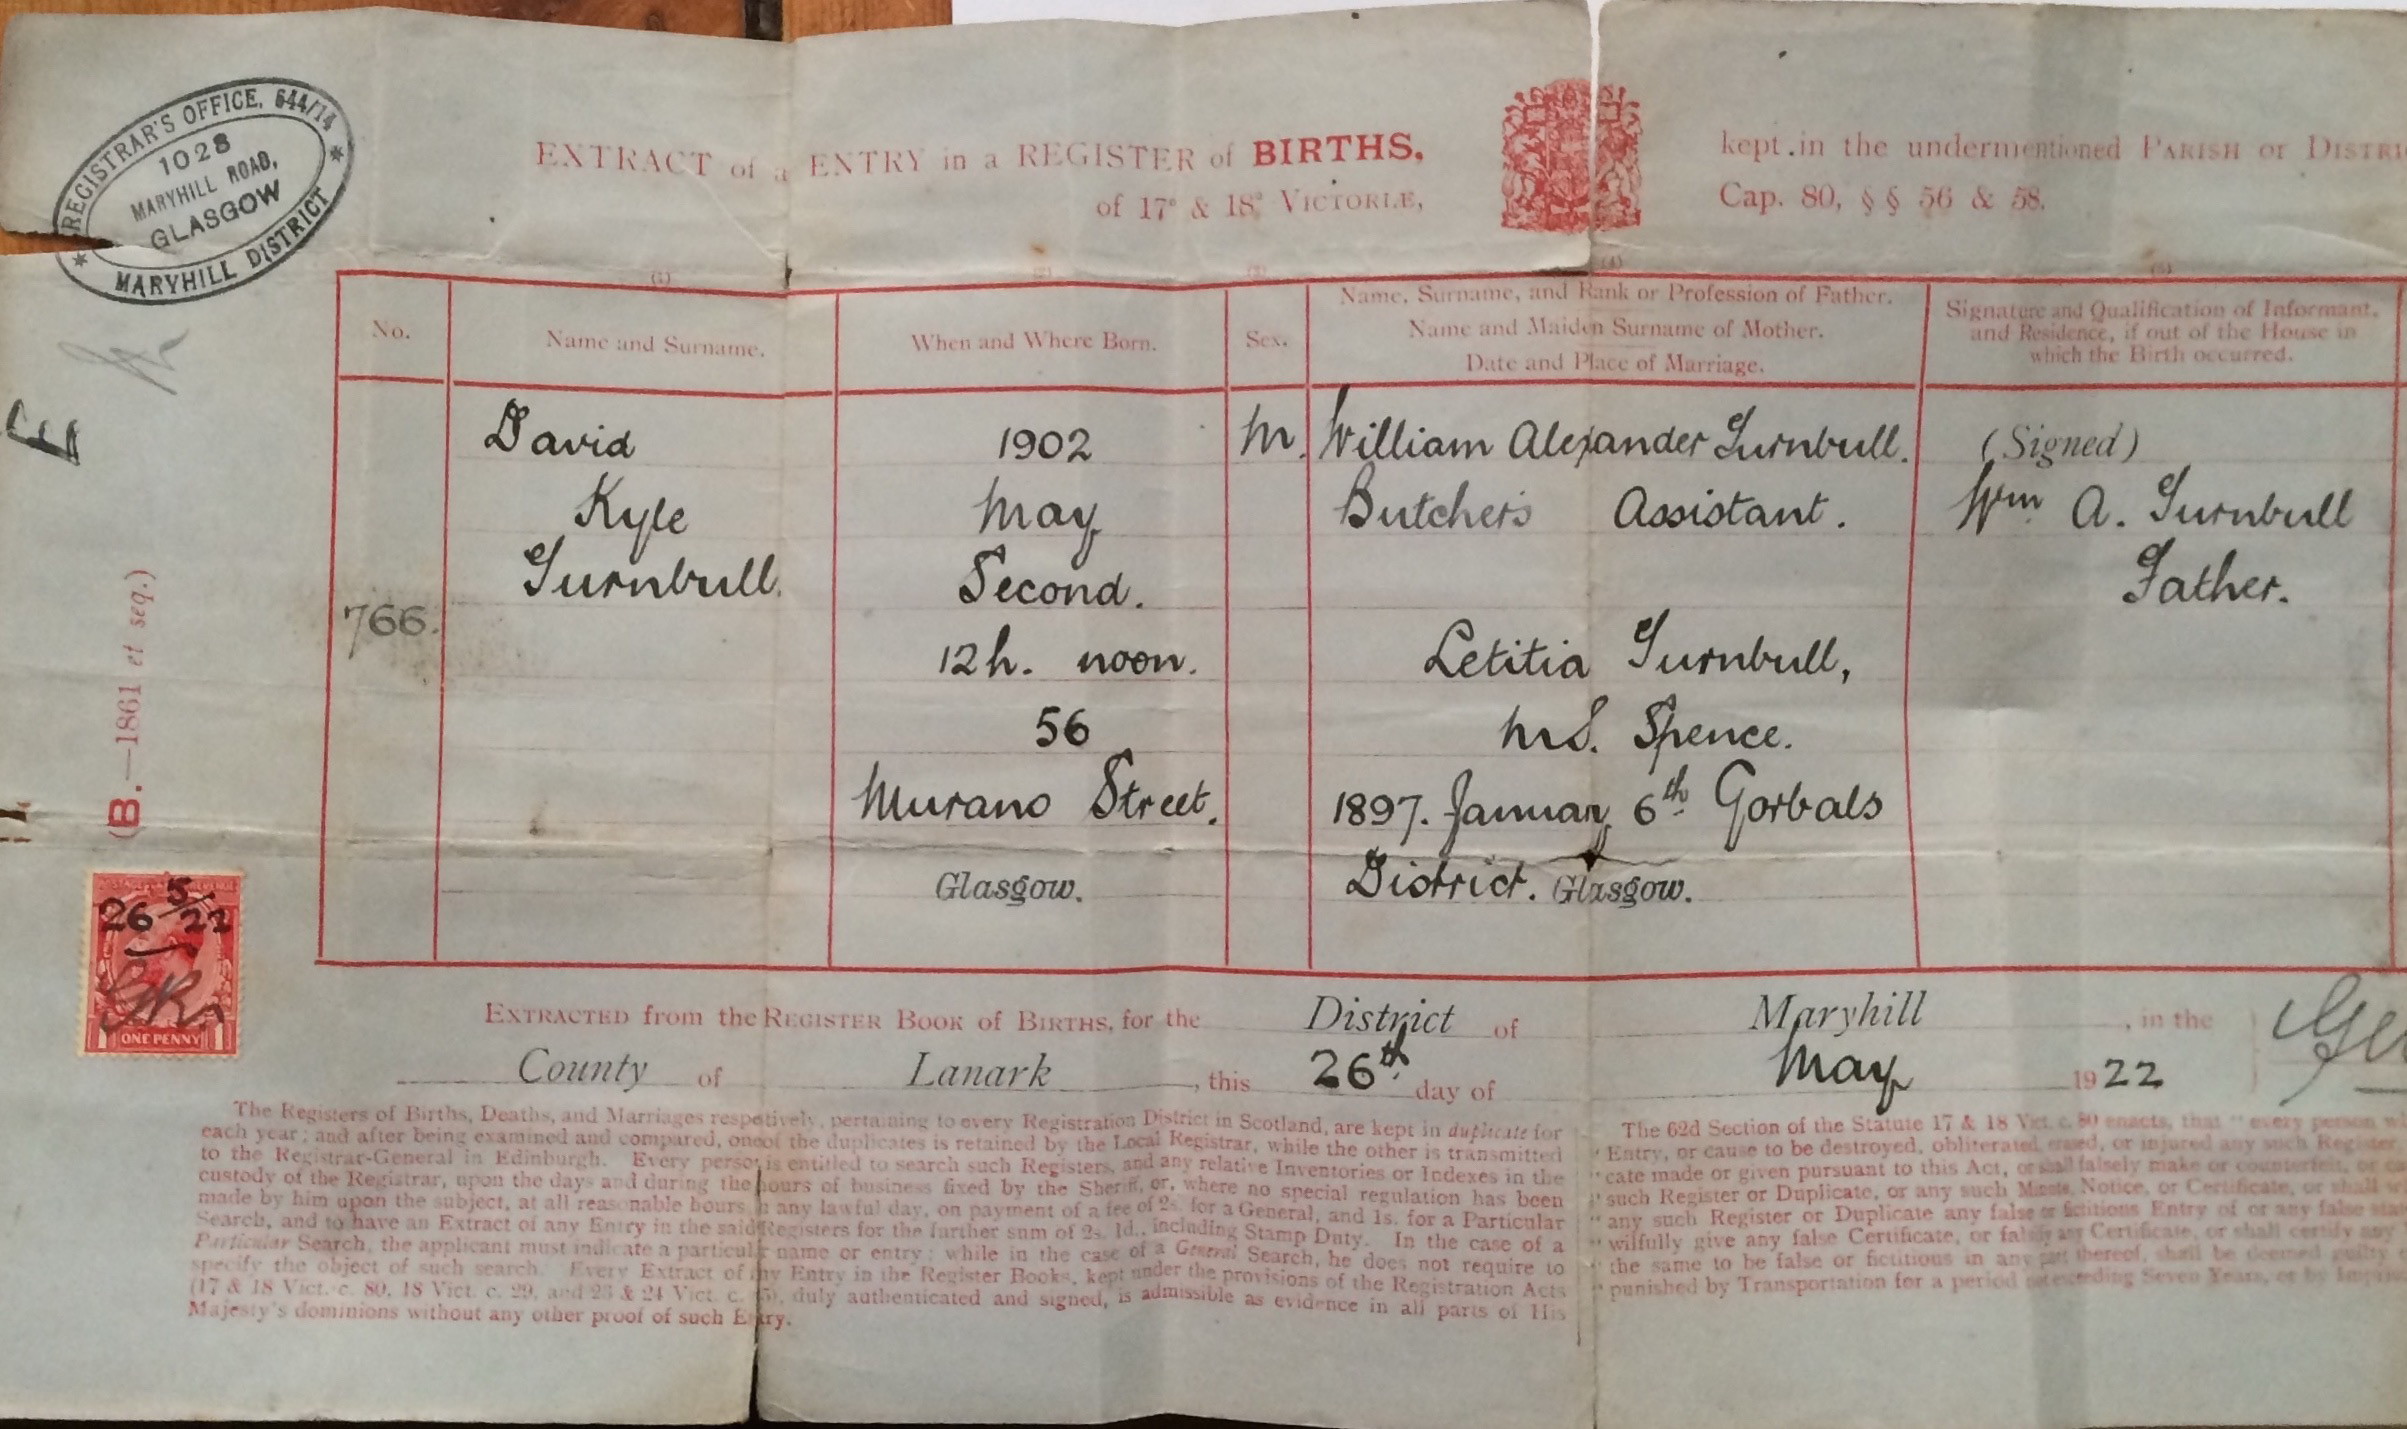 REGISTRAR'S OFFICE, 644/14
1028
MARYHILL ROAD,
GLASGOW
MARYHILL DISTRICT
EXTRACT of a ENTRY in a REGISTER of BIRTHS, kept in the undermentioned PARISH or DISTRI
of 17° & 18° VICTORIÆ, Cap. 80, § § 56 & 58.
(1) (2) (3) (4) (5)
No.
Name and Surname.
When and Where Born.
Sex.
Name, Surname, and Rank or Profession of Father.
Name and Maiden Surname of Mother.
Date and Place of Marriage.
Signature and Qualification of Informant,
and Residence, if out of the House in
which the Birth occurred.
766.
David
Kyle
Turnbull.
1902
May
Second.
12h. noon.
56
Murano Street.
Glasgow.
M.
William Alexander Turnbull.
Butcher's Assistant.
Letitia Turnbull,
M.S. Spence.
1897. January 6th Gorbals
District. Glasgow.
(Signed)
Wm A. Turnbull
Father.
(B.—1861 et seq.)
26 5/22
ONE PENNY
EXTRACTED from the REGISTER BOOK of BIRTHS, for the District of Maryhill, in the
County of Lanark, this 26th day of May 1922
The Registers of Births, Deaths, and Marriages respetively, pertaining to every Registration District in Scotland, are kept in duplicate for
each year; and after being examined and compared, one of the duplicates is retained by the Local Registrar, while the other is transmitted
to the Registrar-General in Edinburgh. Every person is entitled to search such Registers, and any relative Inventories or Indexes in the
custody of the Registrar, upon the days and during the hours of business fixed by the Sheriff, or, where no special regulation has been
made by him upon the subject, at all reasonable hours any lawful day, on payment of a fee of 2s. for a General, and 1s. for a Particular
Search, and to have an Extract of any Entry in the said Registers for the further sum of 2s. 1d., including Stamp Duty. In the case of a
Particular Search, the applicant must indicate a particular name or entry; while in the case of a General Search, he does not require to
specify the object of such search. Every Extract of any Entry in the Register Books, kept under the provisions of the Registration Acts
(17 & 18 Vict. c. 80, 18 Vict. c. 29, and 23 & 24 Vict. c. duly authenticated and signed, is admissible as evidence in all parts of His
Majesty's dominions without any other proof of such Entry.
The 62d Section of the Statute 17 & 18 Vict. c. 80 enacts, that "every person
"Entry, or cause to be destroyed, obliterated, erased, or injured any such Register,
"cate made or given pursuant to this Act, or shall falsely make or counterfeit, or
"such Register or Duplicate, or any such Minute, Notice, or Certificate, or shall
"any such Register or Duplicate any false or fictitious Entry of or any false
"wilfully give any false Certificate, or falsify any Certificate, or shall certify any
"the same to be false or fictitious in any part thereof, shall be deemed guilty
"punished by Transportation for a period not exceeding Seven Years, or by